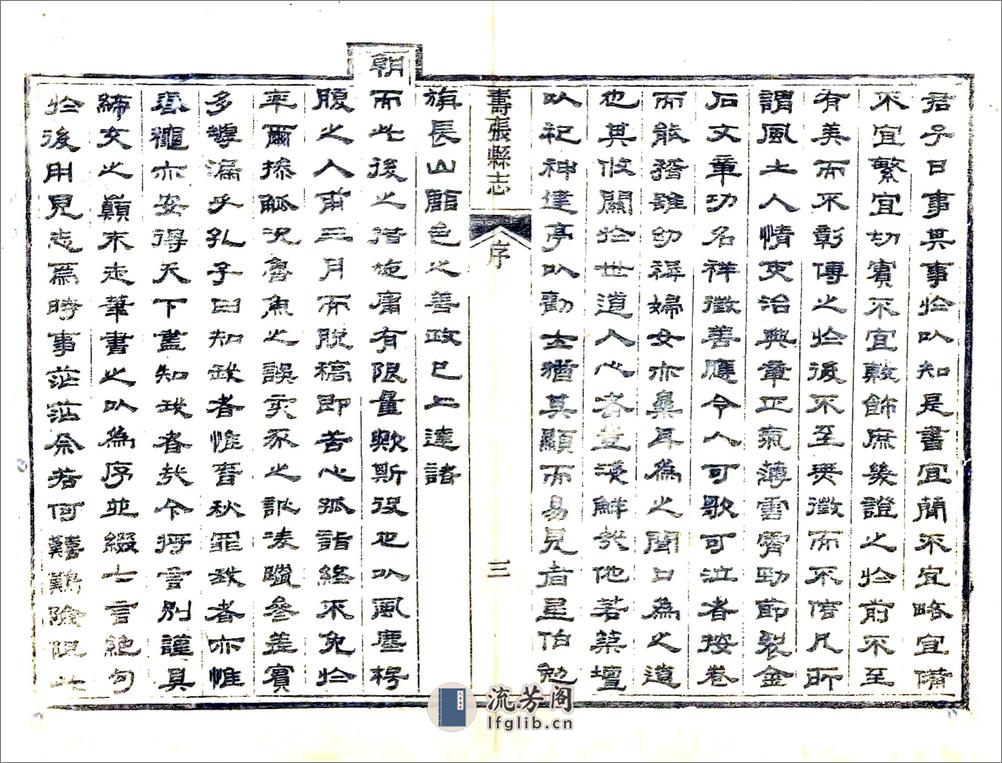 君子曰事其事扵以知是書宜簡不宜略宜備
不宜繁宜切實不宜敷飾庶幾證之扵前不至
有美而不彰傳之扵後不至無徵而不信凡所
謂風土人情吏治典章正氣薄雲霄勁節裂金
石文章功名祥徵善應令人可歌可泣者按卷
而能稽雖幼稺婦女亦耳為之聞口為之道
也其攸關扵世道人心者豈淺鮮哉他若築壇
以祀神建亭以勸士猶其顯而易見者星伯勉
壽張縣志 序 三
旃長山願邑之善政已上達諸
朝而此後之措施庸有限量歟斯役也以風塵枵
腹之人甫三月而脫稿即苦心孤詣終不免扵
率爾操觚況魯魚之誤亥豕之訛淩躐參差實
多罅漏乎孔子曰知我者惟春秋罪我者亦惟
春秋亦安得天下盡知我者哉今將言別謹具
締交之顛末走筆書之以為序並綴七言絕句
扵後用見志焉時事茫茫奈若何艱難險阻此
流芳阁
lfglib.cn